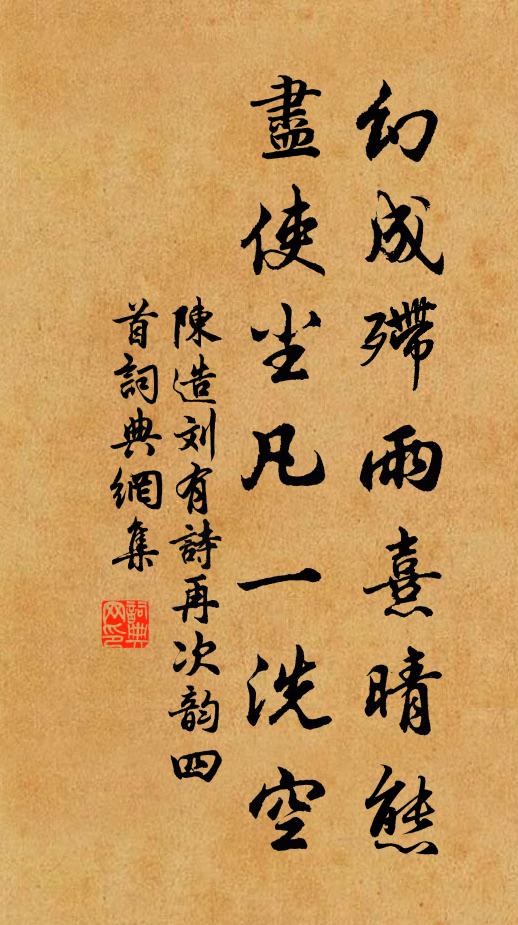 幻成殢雨熹晴態
盡使尘凡一洗空
陳造刘有詩再次韵四
首詞典網集
詞典網印